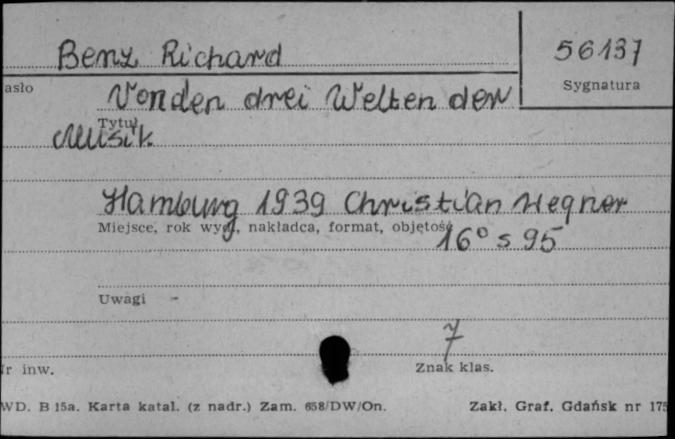 Benz Richard
56137
asło
Sygnatura
Von den drei Welten der
Tytuł
Musik
Hamburg 1939 Christian Wegner
Miejsce, rok wyd., nakładca, format, objętość
16° s 95
Uwagi -
7
r inw.
Znak klas.
WD. B 15a. Karta katal. (z nadr.) Zam. 658/DW/On.
Zakł. Graf. Gdańsk nr 175